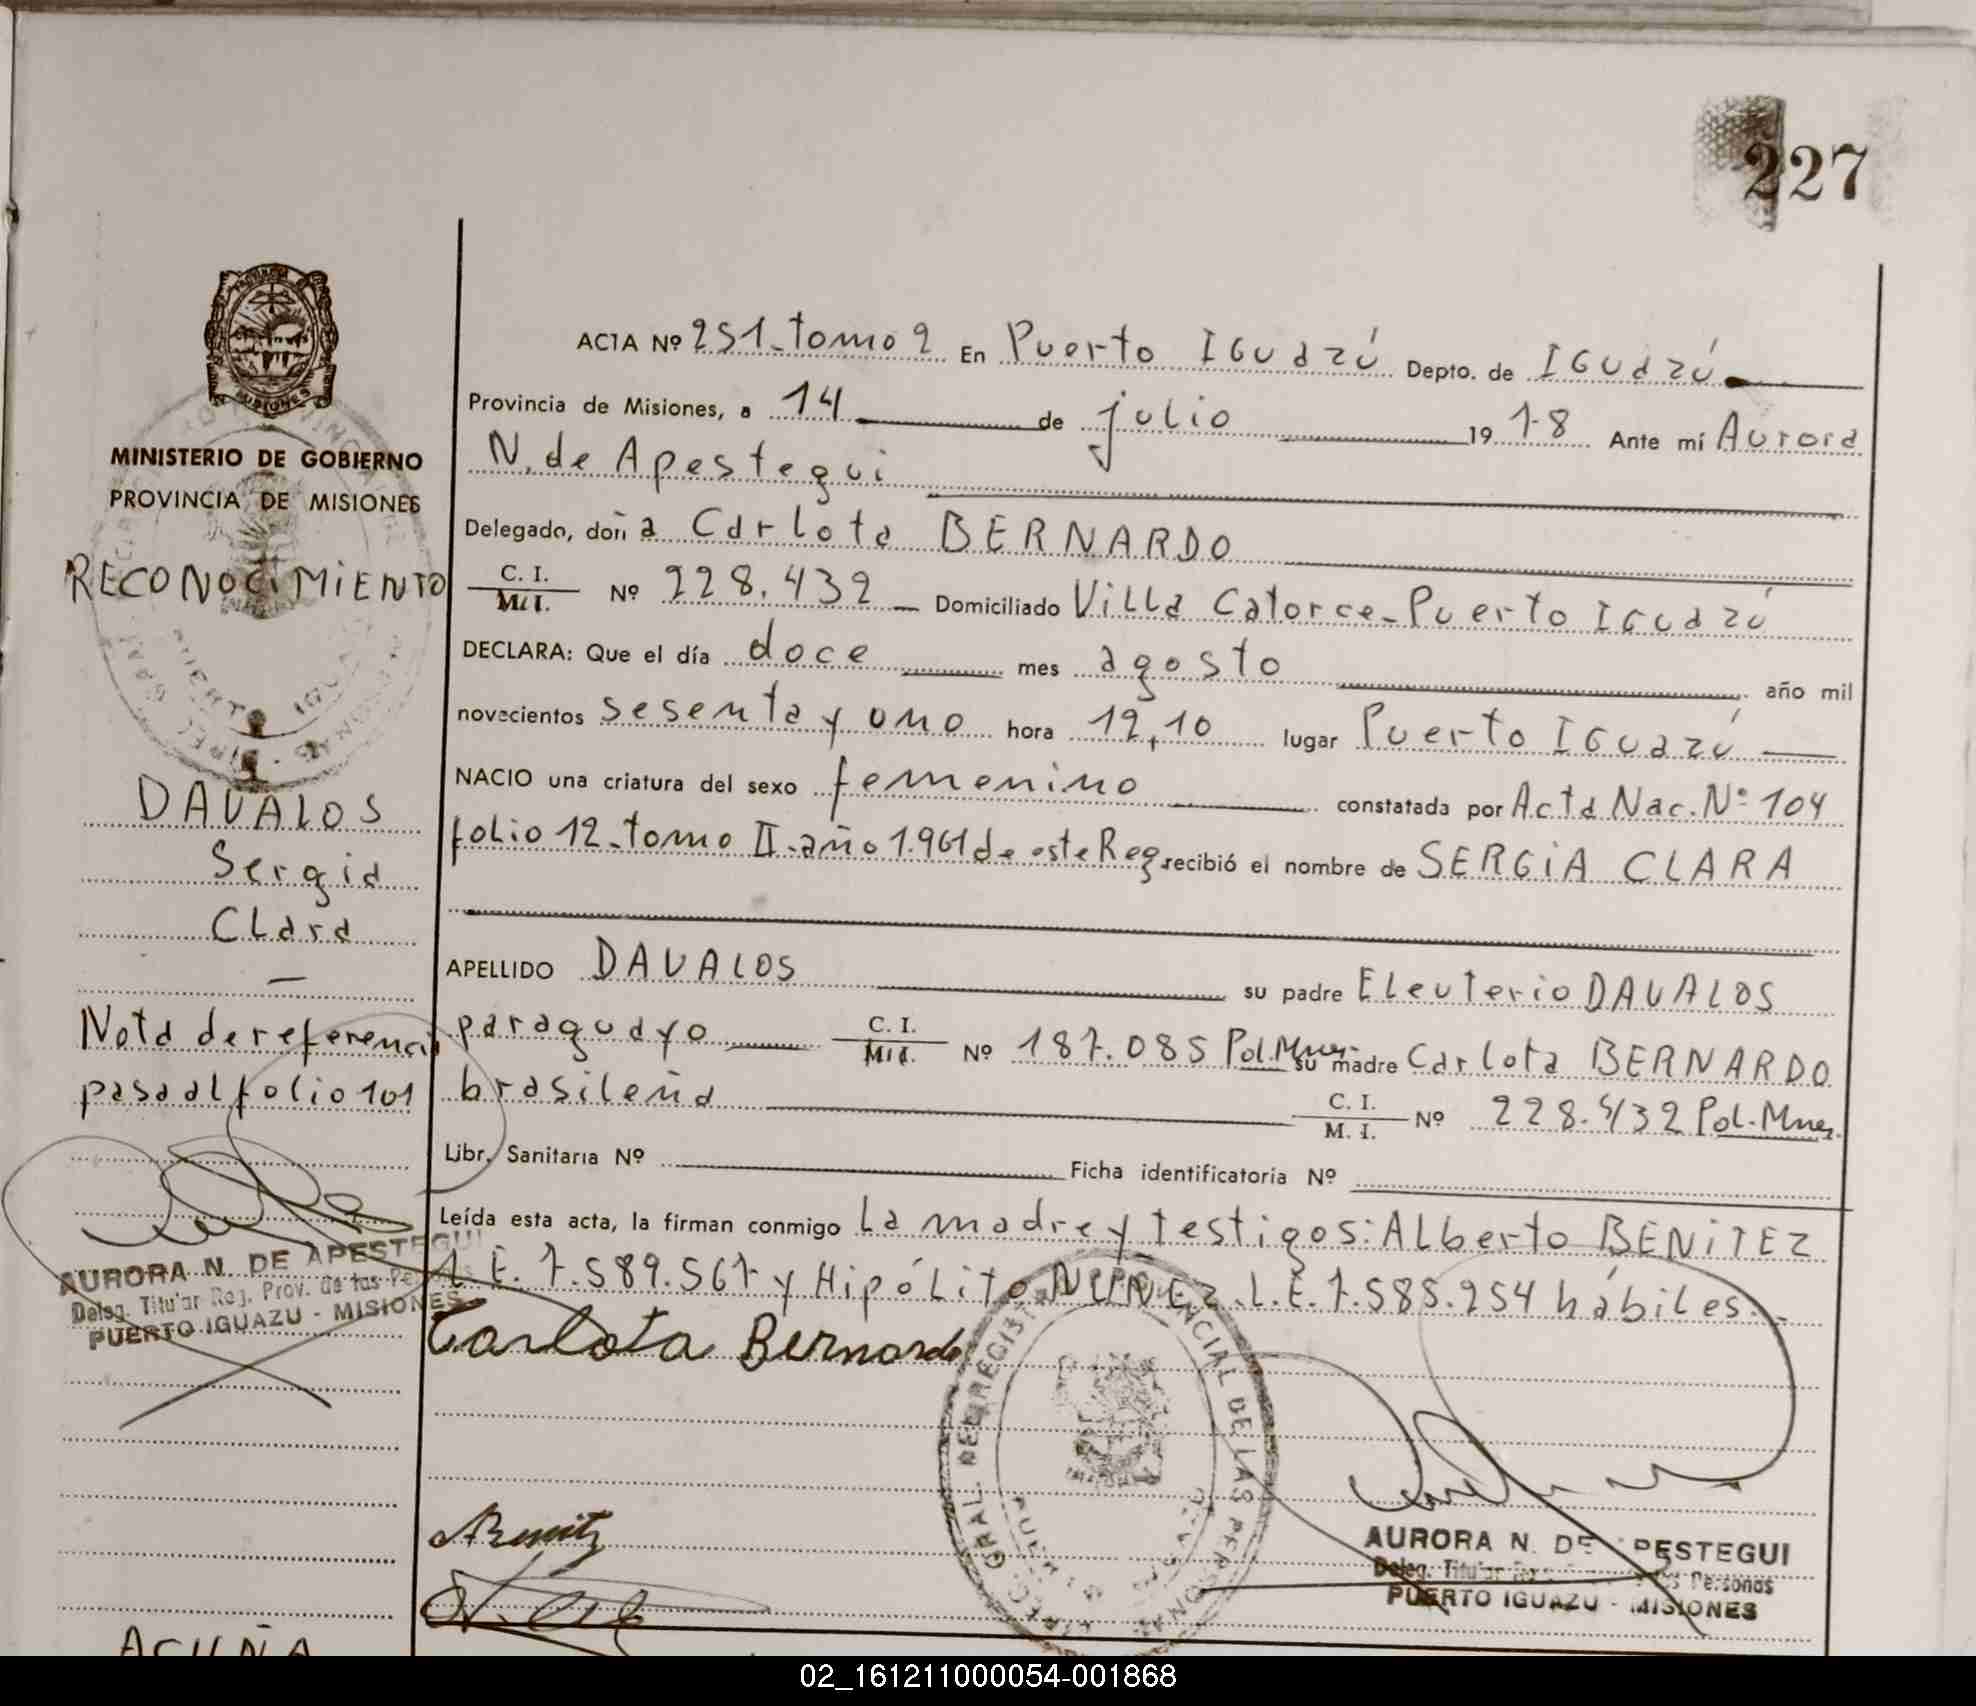 227
ACTA Nº 251-tomo 2 En Puerto IGUAZÚ Depto. de IGUAZÚ
Provincia de Misiones, a 14 de julio 19 78 Ante mí Aurora
N. de Apestegui
MINISTERIO DE GOBIERNO
PROVINCIA DE MISIONES
RECONOCIMIENTO
Delegado, doña Carlota BERNARDO
C. I.
M. I.
Nº 228.432 Domiciliado Villa Catorce-Puerto IGUAZÚ
DECLARA: Que el día doce mes agosto año mil
novecientos sesenta y uno hora 12,10 lugar Puerto IGUAZÚ
NACIO una criatura del sexo femenino constatada por Acta Nac. Nº 104
folio 12-tomo II-año 1.961 de este Reg recibió el nombre de SERGIA CLARA
DAVALOS
Sergia
Clara
APELLIDO DAVALOS su padre Eleuterio DAVALOS
Nota de referencia
pasa al folio 101
paraguayo C. I.
M. I.
Nº 187.085 Pol. Mnes. su madre Carlota BERNARDO
brasileña C. I.
M. I.
Nº 228.432 Pol. Mnes.
Libr. Sanitaria Nº Ficha identificatoria Nº
Leída esta acta, la firman conmigo La madre y testigos: Alberto BENITEZ
L.E. 7.589.567 y Hipólito NUÑEZ L.E. 7.585.254 hábiles.
AURORA N. DE APESTEGUI
Deleg. Titular Reg. Prov. de las Personas
PUERTO IGUAZU - MISIONES
Carlota Bernardo
ABenitz
AURORA N. DE APESTEGUI
Deleg. Titular Personas
PUERTO IGUAZU - MISIONES
ACUÑA
02_161211000054-001868